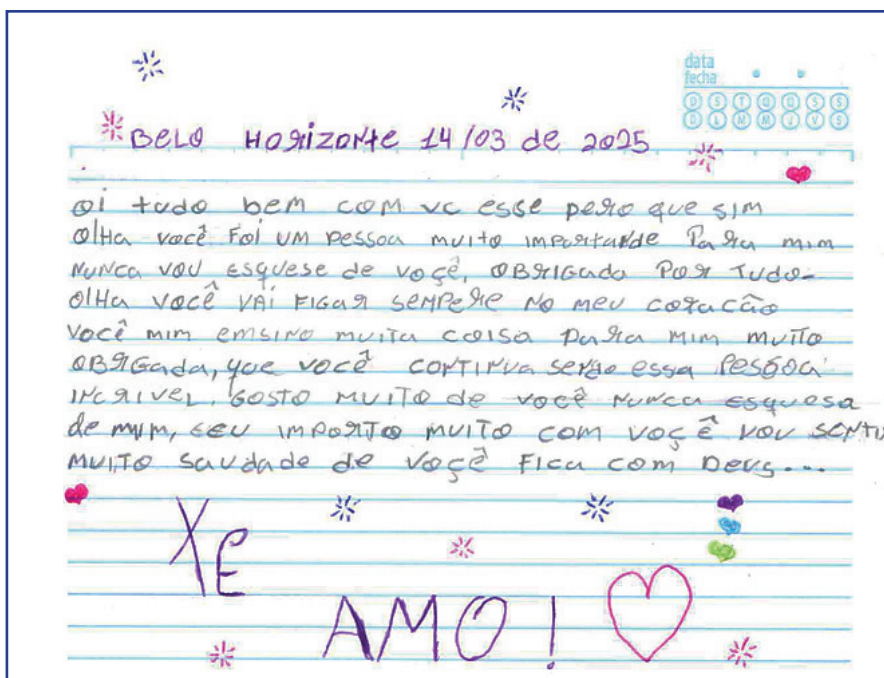 data
fecha
D S T Q Q S S
D L M M J V S
Belo Horizonte 14/03 de 2025
oi tudo bem com vc esse pero que sim
olha você foi um pessoa muito importande para mim
nunca vou esquese de voçê, obrigada por tudo.
olha você vai ficar sempere no meu coracão
você mim emsino muita coisa para mim muito
obrigada, que você continua sendo essa pessoa
incrivel. gosto muito de você nunca esquesa
de mim, eeu importo muito com voçê vou senti
muito saudade de voçê fica com Deus...
Xe
AMO!